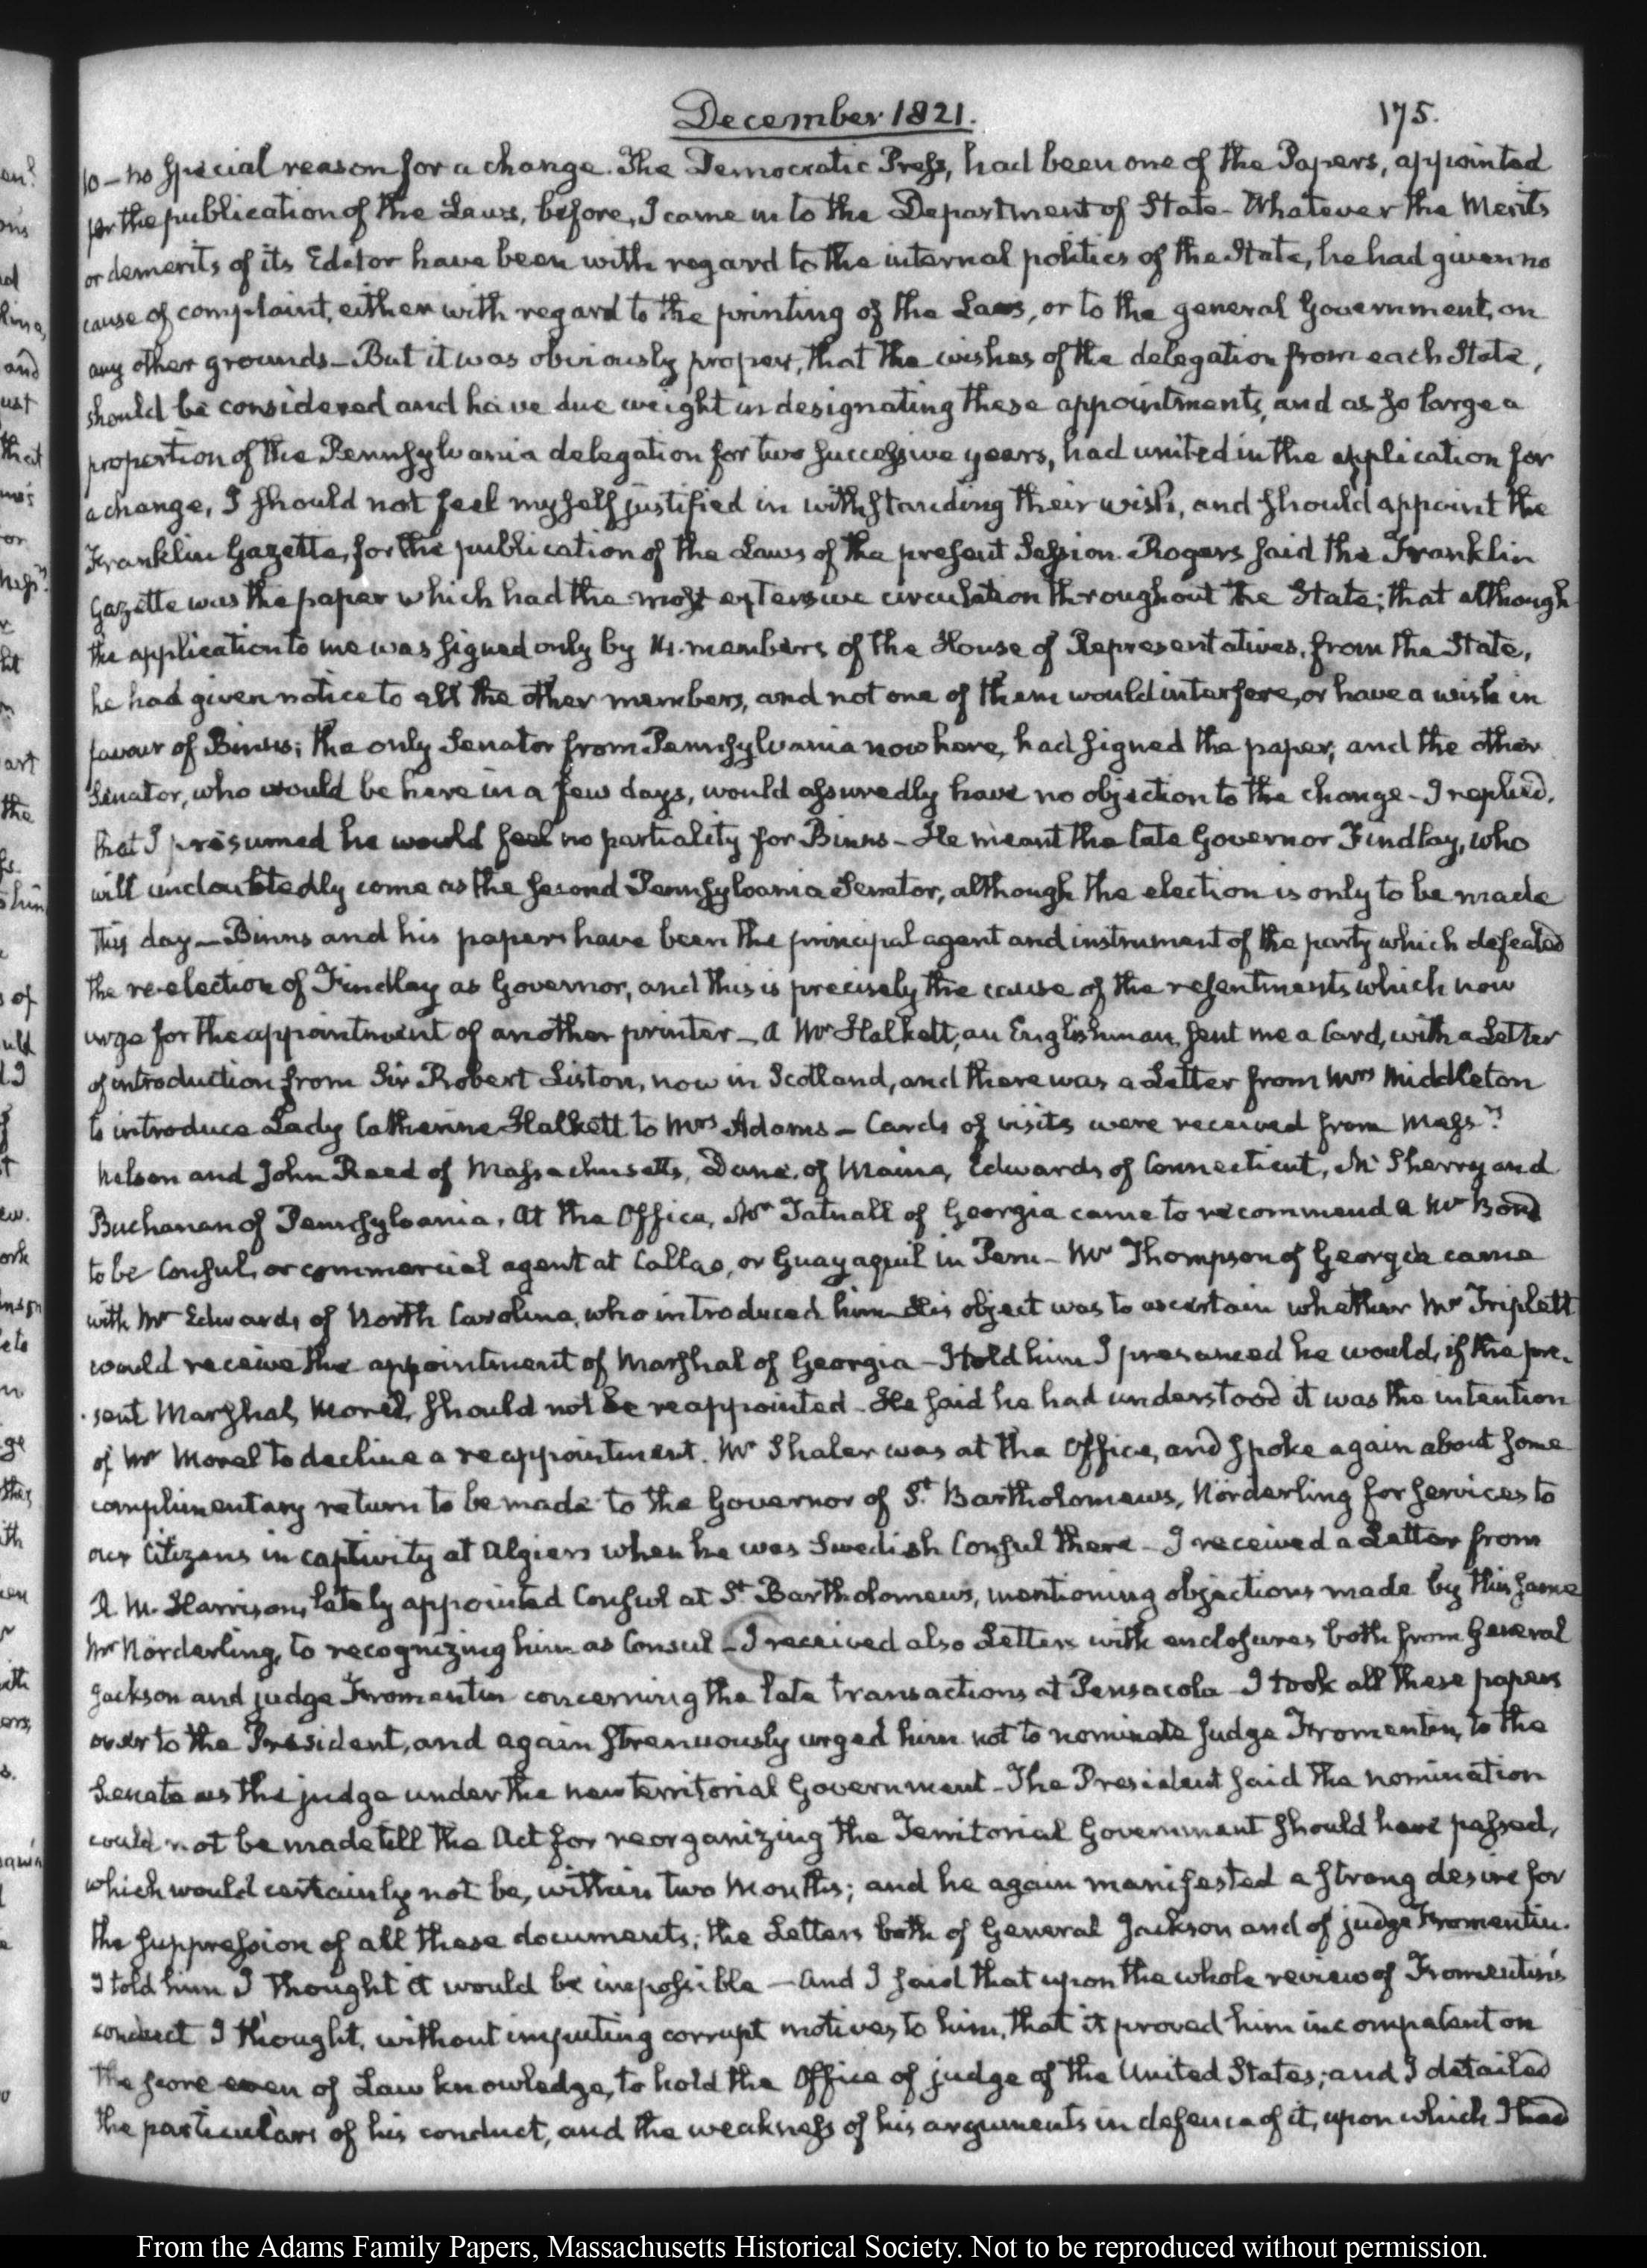 December 1821.
175.
to – no special reason for a change. The Democratic Press, had been one of the Papers, appointed
for the publication of the Laws, before, I came into the Department of State – Whatever the Merits
or demerits of its Editor have been with regard to the internal politics of the State, he had given no
cause of complaint, either with regard to the printing of the Laws, or to the general Government, on
any other grounds – But it was obviously proper, that the wishes of the delegation from each State,
should be considered and have due weight in designating these appointments, and as so large a
proportion of the Pennsylvania delegation for two successive years, had united in the application for
a change, I should not feel myself justified in withstanding their wish, and should appoint the
Franklin Gazette, for the publication of the Laws of the present Session. Rogers said the Franklin
Gazette was the paper which had the most extensive circulation throughout the State; that although
the application to me was signed only by 14. members of the House of Representatives, from the State,
he had given notice to all the other members, and not one of them would interfere, or have a wish in
favour of Binns; the only Senator from Pennsylvania now here, had signed the paper, and the other
Senator, who would be here in a few days, would assuredly have no objection to the change – I replied,
that I presumed he would feel no partiality for Binns – He meant the late Governor Findlay, who
will undoubtedly come as the second Pennsylvania Senator, although the election is only to be made
this day – Binns and his papers have been the principal agent and instrument of the party which defeated
the re-election of Findlay as Governor, and this is precisely the cause of the resentments which now
urge for the appointment of another printer – A Mr Halkett, an Englishman, sent me a Card, with a Letter
of introduction from Sir Robert Liston, now in Scotland, and there was a Letter from Mrs Middleton
to introduce Lady Catherine Halkett to Mrs Adams – Cards of visits were received from Messrs
Nelson and John Reed of Massachusetts, Dane of Maine, Edwards of Connecticut, Mc Sherry and
Buchanan of Pennsylvania. At the Office, Mr Tatnall of Georgia came to recommend a Mr Bond
to be Consul, or commercial agent at Callao, or Guayaquil in Peru – Mr Thompson of Georgia came
with Mr Edwards of North Carolina, who introduced him – His object was to ascertain whether Mr Triplett
would receive the appointment of Marshal of Georgia – I told him I presumed he would, if the pre-
sent Marshal, Morel, should not be reappointed – He said he had understood it was the intention
of Mr Morel to decline a reappointment. Mr Shaler was at the Office, and spoke again about some
complimentary return to be made to the Governor of St. Bartholomews, Nörderling for services to
our Citizens in captivity at Algiers when he was Swedish Consul there – I received a Letter from
R. M. Harrison, lately appointed Consul at St. Bartholomews, mentioning objections made by this same
Mr Nörderling, to recognizing him as Consul – I received also Letters with enclosures both from General
Jackson and judge Fromentin concerning the late transactions at Pensacola – I took all these papers
over to the President, and again strenuously urged him not to nominate judge Fromentin, to the
Senate as the judge under the new territorial Government – The President said the nomination
could not be made till the Act for reorganizing the Territorial Government should have passed,
which would certainly not be, within two Months; and he again manifested a strong desire for
the suppression of all these documents; the Letters both of General Jackson and of judge Fromentin.
I told him I thought it would be impossible – And I said that upon the whole review of Fromentin's
conduct I thought, without imputing corrupt motives to him, that it proved him incompetent on
the score even of Law knowledge, to hold the Office of judge of the United States; and I detailed
the particulars of his conduct, and the weakness of his arguments in defence of it, upon which I had
From the Adams Family Papers, Massachusetts Historical Society. Not to be reproduced without permission.